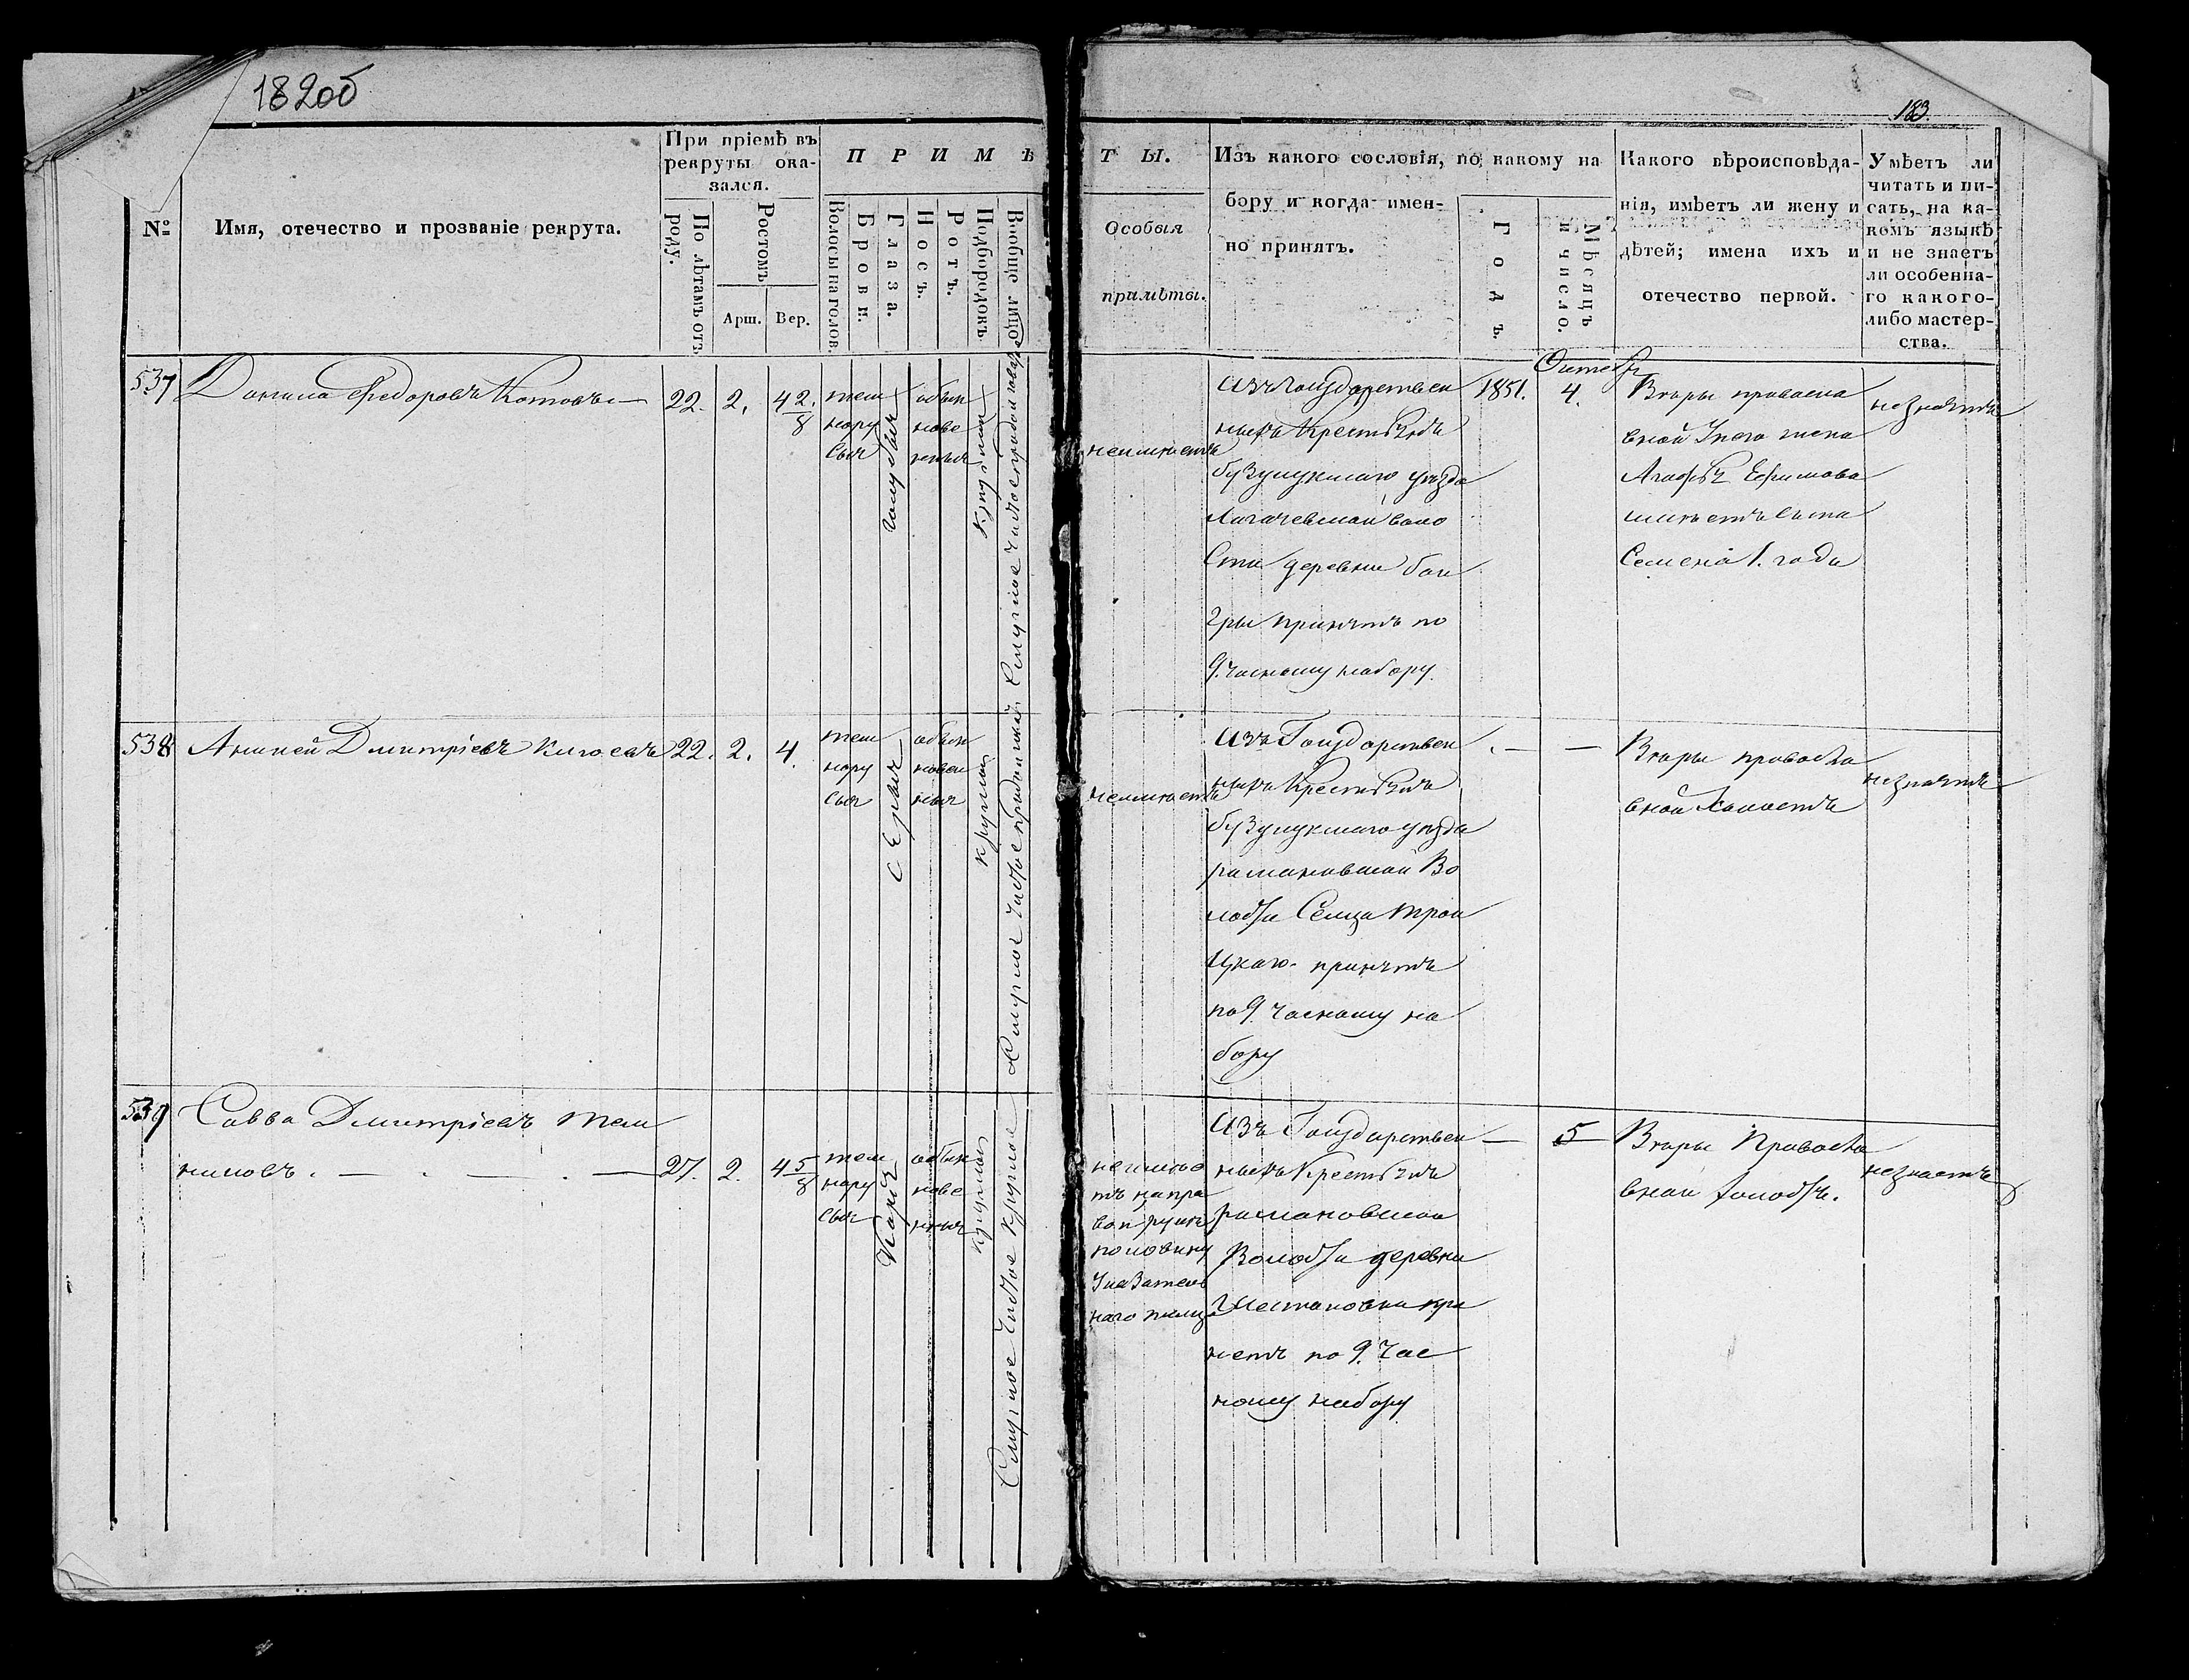 182об
183.
№
Имя, отечество и прозваніе рекрута.
При пріемѣ въ
рекруты ока-
зался.
По лѣтамъ отъ
роду.
Ростомъ
Арш.
Вер.
ПРИМѢ
Волосы на голов.
Брови.
Глаза.
Носъ.
Ротъ.
Подбородокъ
Вообще лицо
ТЫ.
Особыя
примѣты.
Изъ какого сословія, по какому на
бору и когда имен-
но принятъ.
Годъ.
Мѣсяцъ
и число.
Какого вѣроисповѣда-
нія, имѣетъ ли жену и
дѣтей; имена ихъ и
отечество первой.
Умѣетъ ли
читать и пи-
сать, на ка-
комъ языкѣ
и не знаетъ
ли особенна-
го какого-
либо мастер-
ства.
537
Данила Федоровъ Котовъ —
22.
2.
4 2/8
тем
нору
сыя
голубыя
обык
нове
ныя
круглый
Смуглое чистое
неимѣетъ
Изъ Государствен
ныхъ Крестьянъ
бузулукскаго уезда
волО
Сти деревни
гры принятъ по
9. часному набору
1851.
Октябр
4.
Веры правосла
вной Унего жена
Агафья Ефимова
имѣетъ сына
Семена 1. года
незнаетъ
538
Дмитріевъ
22.
2.
4.
тем
нору
сыя
серыя
обык
новен
ныя
круглый
Смуглое чистое продолговатое
неимѣетъ
Изъ Государствен
ныхъ Крестьянъ
бузулукскаго уезда
романовской Во
лости Сельца Трои
цкаго принятъ
по 9. часному на
бору
. —
—
Веры правосла
вной Холостъ
незнаетъ
539
Савва Дмитріевъ Тем
никовъ . — . — . —
27.
2.
4 5/8
тем
нору
сыя
Карія
обык
нове
ныя
круглый
Смуглое чистое круглое
неимѣе
тъ на пра
вой руке
половину
Указатель
наго пальца
Изъ Государствен
ныхъ Крестьянъ
романовской
Волости деревни
при
нетъ по 9. час
ному набору
—
5
Веры Правосла
вной холостъ.
незнаетъ